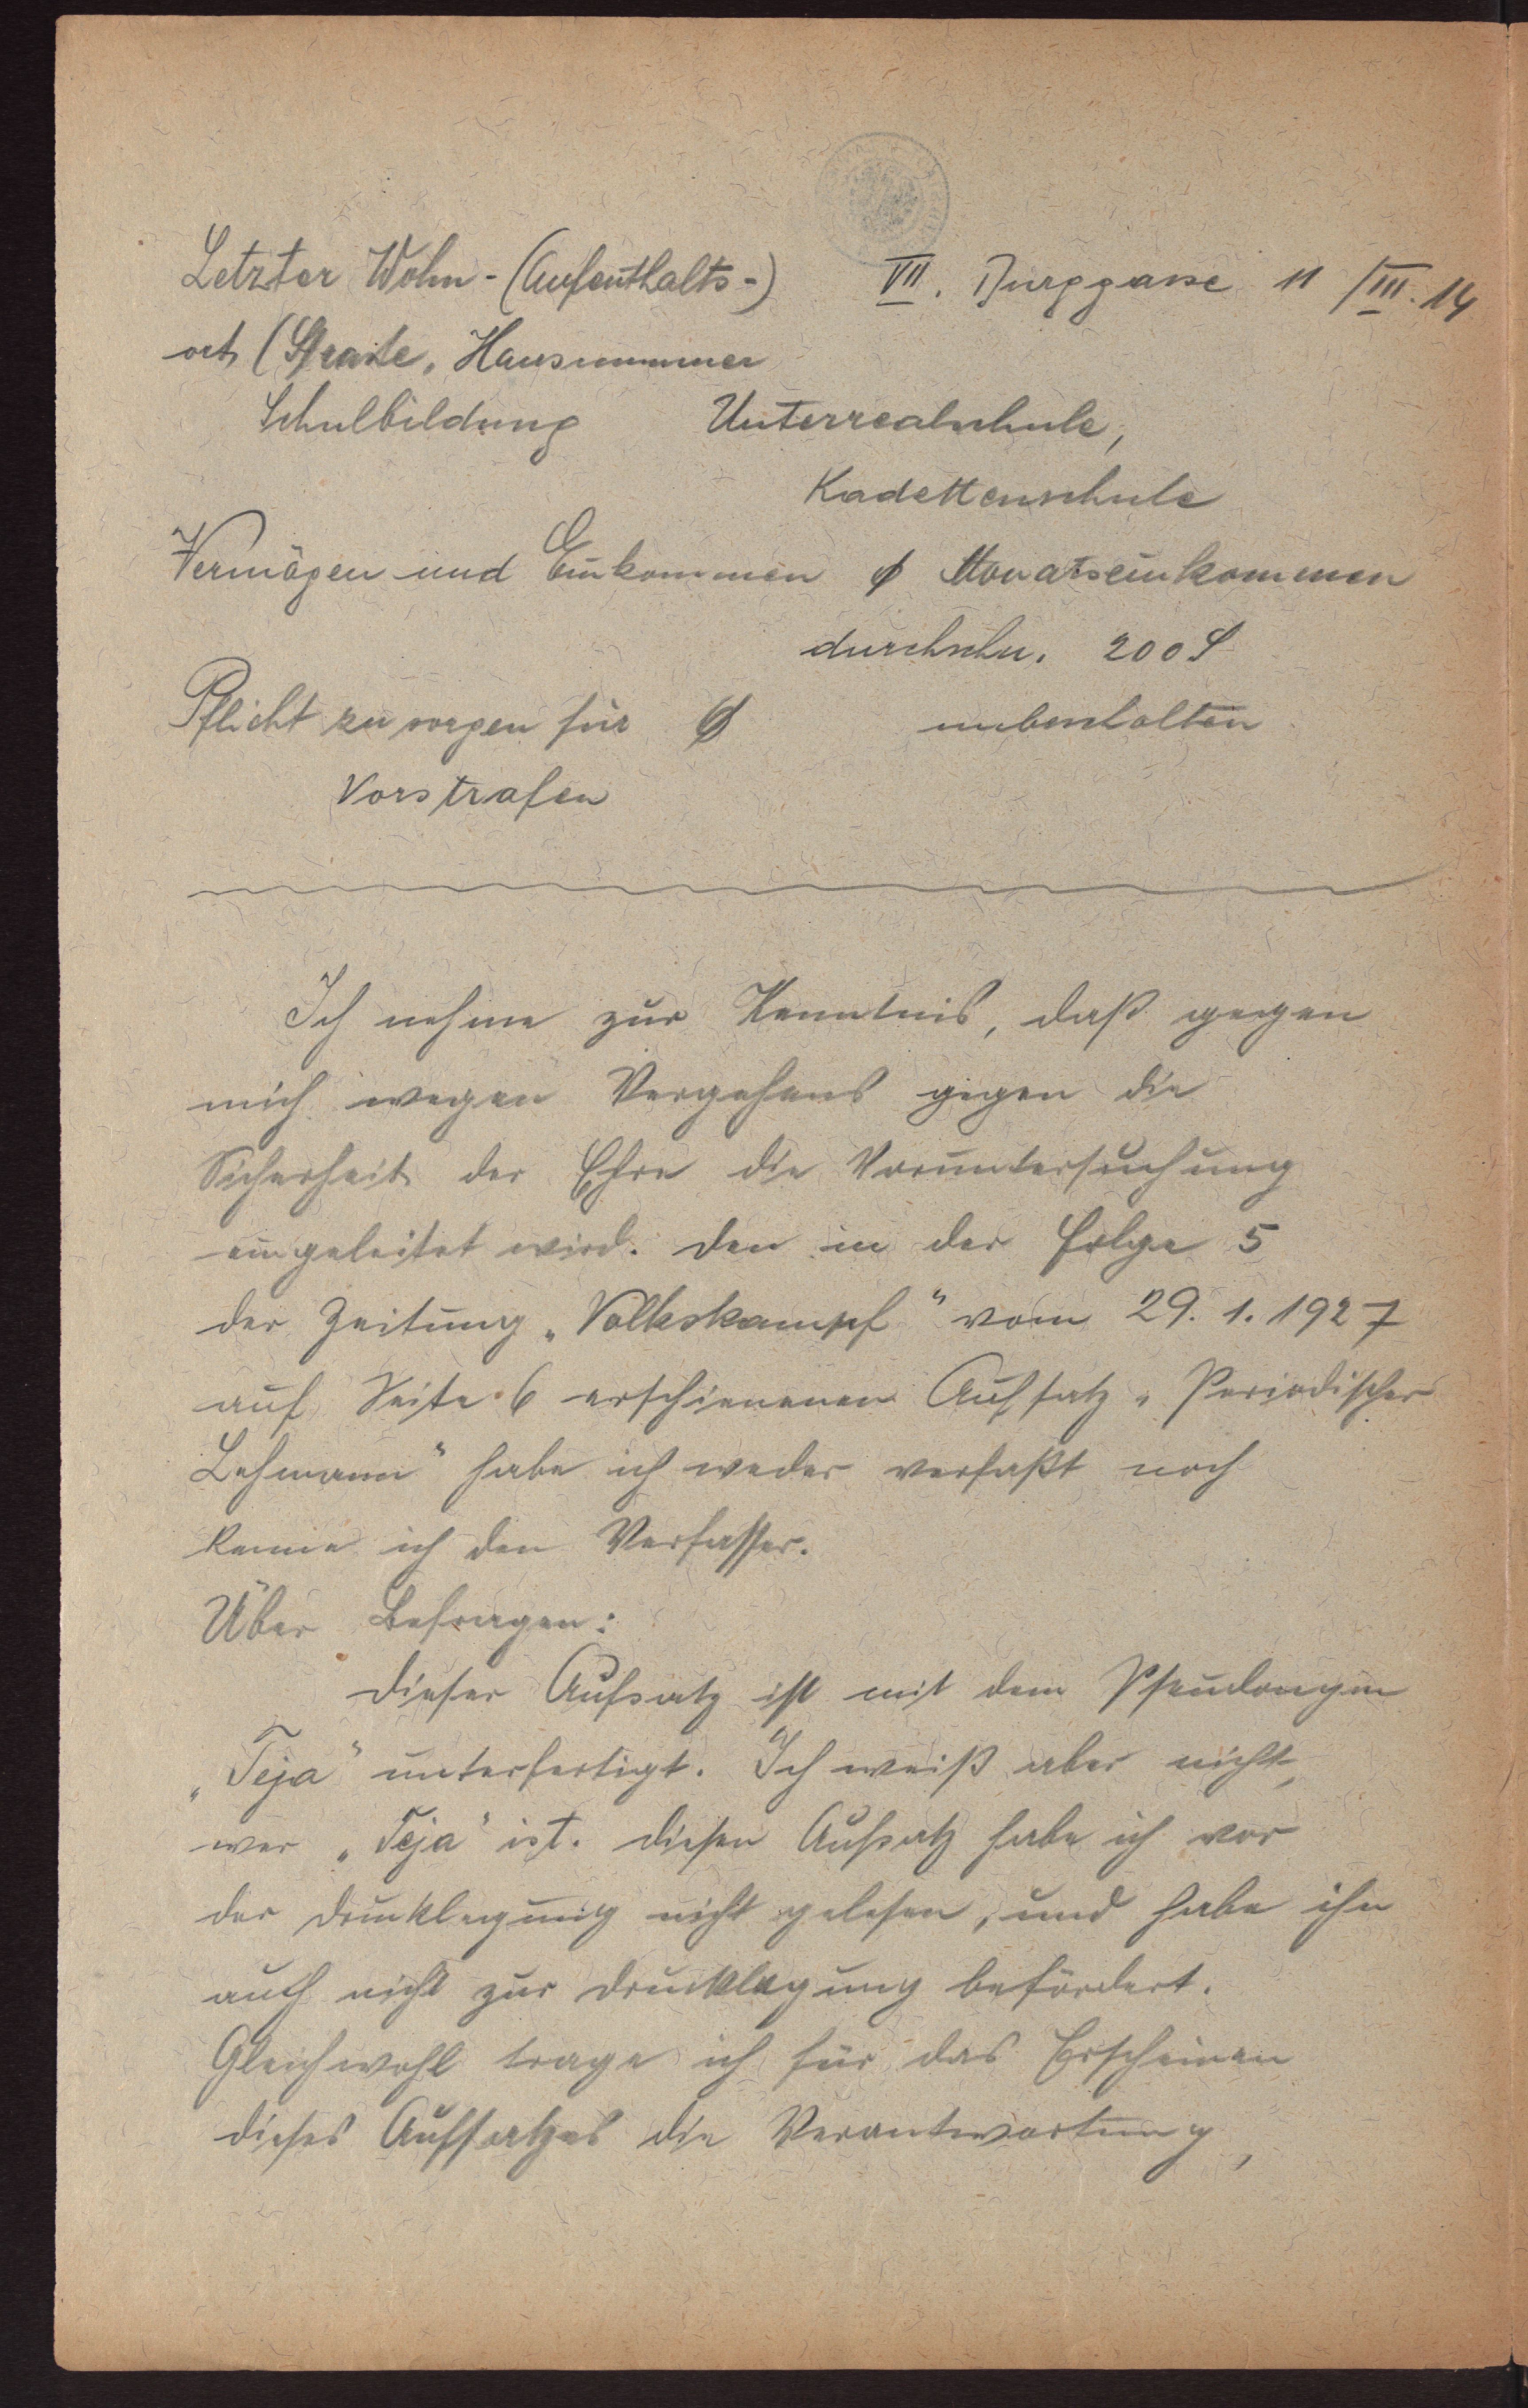 Letzter Wohn-(Aufenthalts-) VII. Burggasse 11 /III. 14
ort (Straße, Hausnummer
Schulbildung Unterrealschule,
Kadettenschule
Vermögen und Einkommen ø Monatseinkommen
durchschn. 200 S
Pflicht zu sorgen für ø unbescholten
Vorstrafen
Ich nehme zur Kenntnis, daß gegen
mich wegen Vergehens gegen die
Sicherheit der Ehre die Voruntersuchung
eingeleitet wird. Den in der Folge 5
der Zeitung „Volkskampf" vom 29. 1. 1927
auf Seite 6 erschienenen Aufsatz „Periodischer
Lehmann" habe ich weder verfaßt noch
kenne ich den Verfasser.
Über Befragen:
Dieser Aufsatz ist mit dem Pseudonym
„Teja" unterfertigt. Ich weiß aber nicht,
wer „Teja" ist. Diesen Aufsatz habe ich vor
der Drucklegung nicht gelesen, und habe ihn
auch nicht zur Drucklegung befördert.
Gleichwohl trage ich für das Erscheinen
dieses Aufsatzes die Verantwortung,